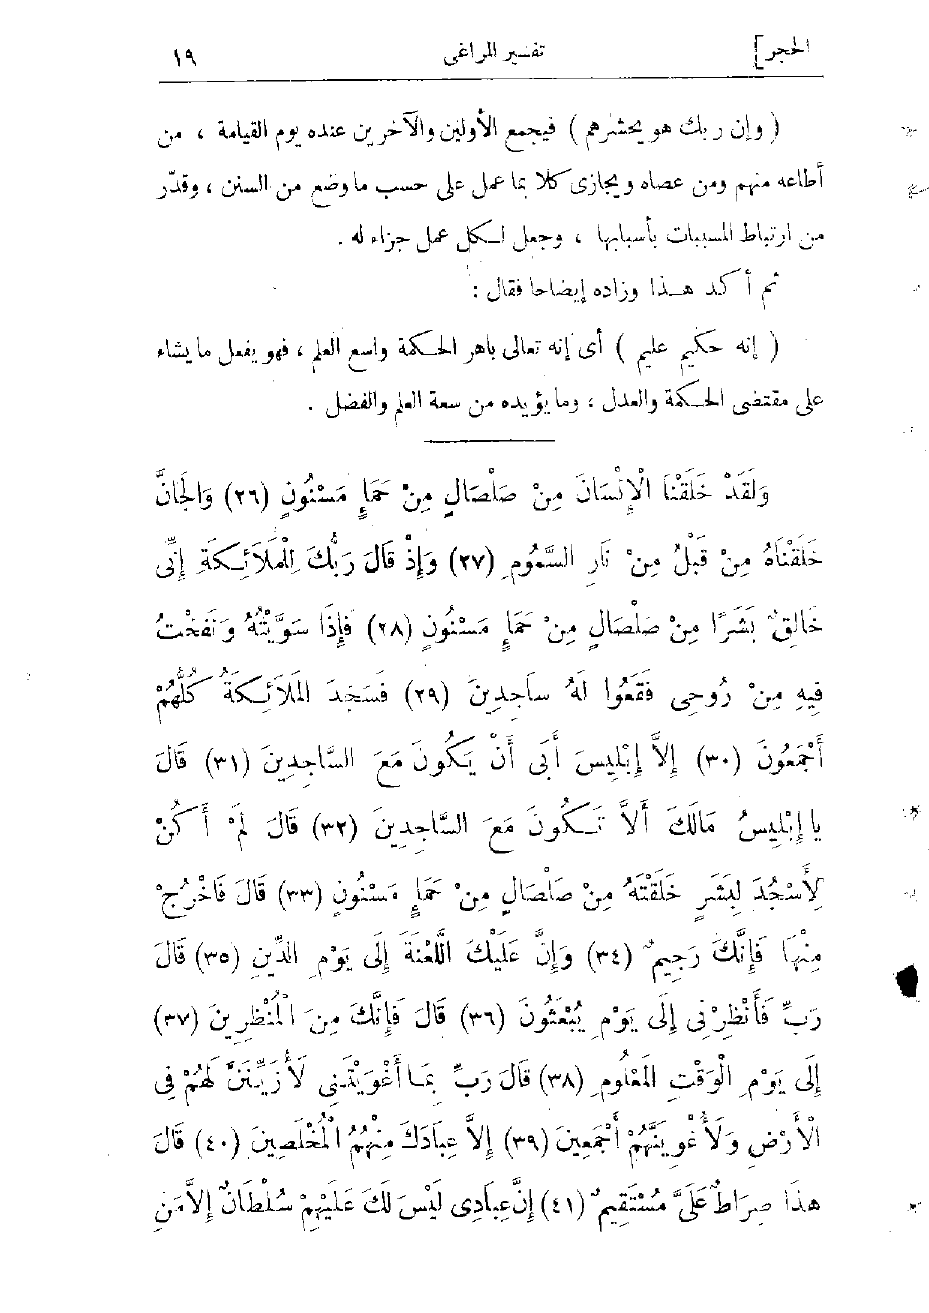 الحجر] تفسير المراغى ١٩
( وإن ربك هو يحشرهم ) فيجمع الأولين والآخرين عنده يوم القيامة ، من
أطاعه منهم ومن عصاه ويجازى كلا بما عمل على حسب ما وضع من السنن ، وقدّر
من ارتباط المسببات بأسبابها ، وجعل لكل عمل جزاء له .
ثم أكد هذا وزاده إيضاحا فقال :
( إنه حكيم عليم ) أى إنه تعالى باهر الحكمة واسع العلم ، فهو يفعل ما يشاء
على مقتضى الحكمة والعدل ، وما يؤيده من سعة العلم والفضل .
وَلَقَدْ خَلَقْنَا الْإِنْسَانَ مِنْ صَلْصَالٍ مِنْ حَمَإٍ مَسْنُونٍ (٢٦) وَالْجَانَّ
خَلَقْنَاهُ مِنْ قَبْلُ مِنْ نَارِ السَّمُومِ (٢٧) وَإِذْ قَالَ رَبُّكَ لِلْمَلَائِكَةِ إِنِّى
خَالِقٌ بَشَرًا مِنْ صَلْصَالٍ مِنْ حَمَإٍ مَسْنُونٍ (٢٨) فَإِذَا سَوَّيْتُهُ وَنَفَخْتُ
فِيهِ مِنْ رُوحِى فَقَعُوا لَهُ سَاجِدِينَ (٢٩) فَسَجَدَ الْمَلَائِكَةُ كُلُّهُمْ
أَجْمَعُونَ (٣٠) إِلاَّ إِبْلِيسَ أَبَى أَنْ يَكُونَ مَعَ السَّاجِدِينَ (٣١) قَالَ
يَا إِبْلِيسُ مَالَكَ أَلاَّ تَكُونَ مَعَ السَّاجِدِينَ (٣٢) قَالَ لَمْ أَكُنْ
لِأَسْجُدَ لِبَشَرٍ خَلَقْتَهُ مِنْ صَلْصَالٍ مِنْ حَمَإٍ مَسْنُونٍ (٣٣) قَالَ فَاخْرُجْ
مِنْهَا فَإِنَّكَ رَجِيمٌ (٣٤) وَإِنَّ عَلَيْكَ اللَّعْنَةَ إِلَى يَوْمِ الدِّينِ (٣٥) قَالَ
رَبِّ فَأَنْظِرْنِى إِلَى يَوْمِ يُبْعَثُونَ (٣٦) قَالَ فَإِنَّكَ مِنَ الْمُنْظَرِينَ (٣٧)
إِلَى يَوْمِ الْوَقْتِ الْمَعْلُومِ (٣٨) قَالَ رَبِّ بِمَا أَغْوَيْتَنِى لَأُزَيِّنَنَّ لَهُمْ فِى
الْأَرْضِ وَلَأُغْوِيَنَّهُمْ أَجْمَعِينَ (٣٩) إِلاَّ عِبَادَكَ مِنْهُمُ الْمُخْلَصِينَ (٤٠) قَالَ
هذَا صِرَاطٌ عَلَىَّ مُسْتَقِيمٌ (٤١) إِنَّ عِبَادِى لَيْسَ لَكَ عَلَيْهِمْ سُلْطَانٌ إِلاَّ مَنِ